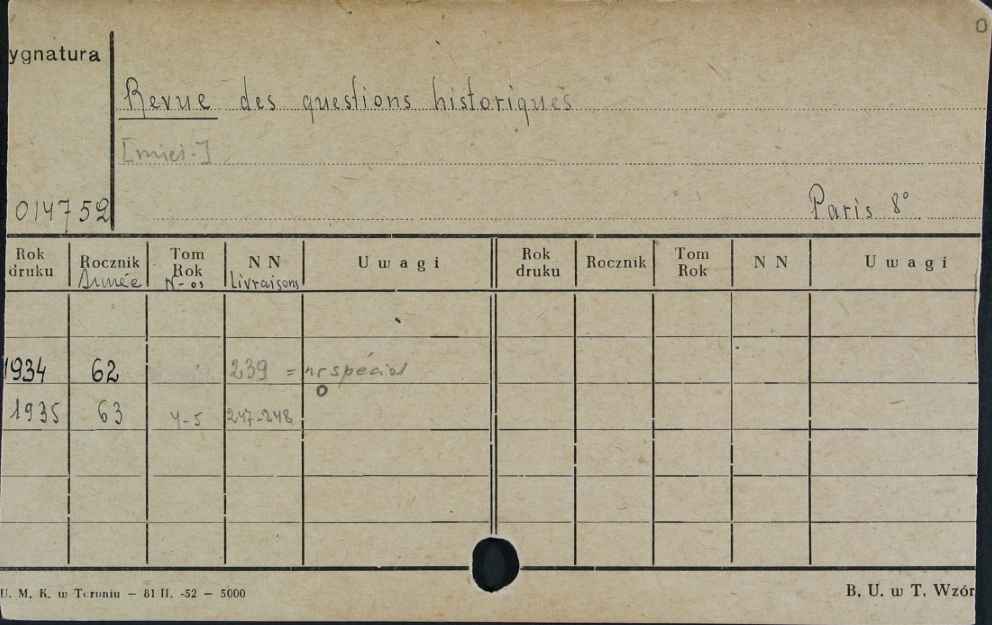 ygnatura
Revue des questions historiques
[miei.]
014752
Paris 8°
Rok druku Rocznik Tom Rok N N Uwagi Rok druku Rocznik Tom Rok N N Uwagi
Année N-os Livraisons
1934 62 239 = nr spécial
1935 63 4-5 247-248
U. M. K. w Toruniu — 81 II. -52 — 5000
B. U. w T. Wzór